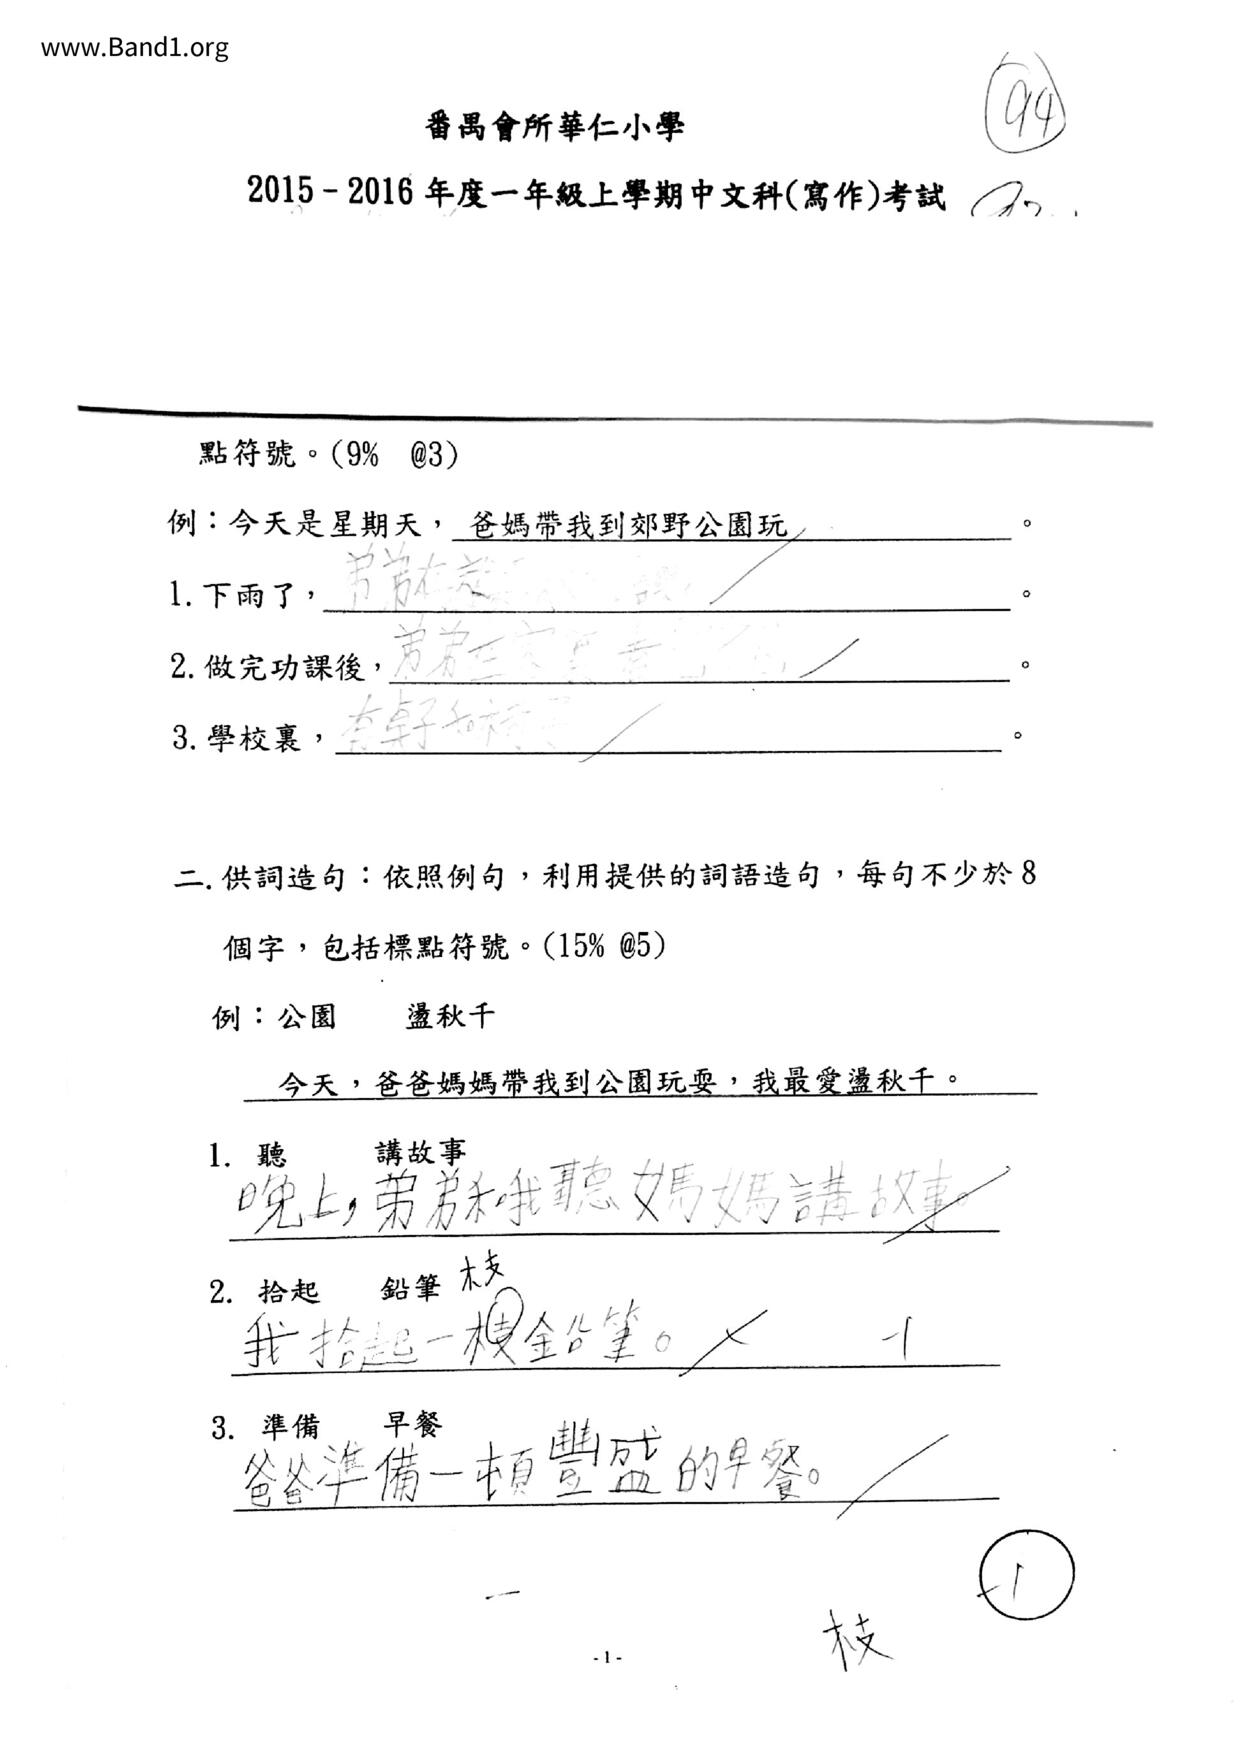 www.Band1.org
94
番禺會所華仁小學
2015-2016 年度一年級上學期中文科(寫作)考試
點符號。(9% @3)
例：今天是星期天，爸媽帶我到郊野公園玩。
1. 下雨了，弟弟在
2. 做完功課後，弟弟在家
3. 學校裏，有桌子和椅子。
二. 供詞造句：依照例句，利用提供的詞語造句，每句不少於8
個字，包括標點符號。(15% @5)
例：公園 盪秋千
今天，爸爸媽媽帶我到公園玩耍，我最愛盪秋千。
1. 聽 講故事
晚上，弟弟和我聽媽媽講故事。
2. 拾起 鉛筆 枝
我拾起一枝鉛筆。 -1
3. 準備 早餐
爸爸準備一頓豐盛的早餐。
-1
枝
-1-